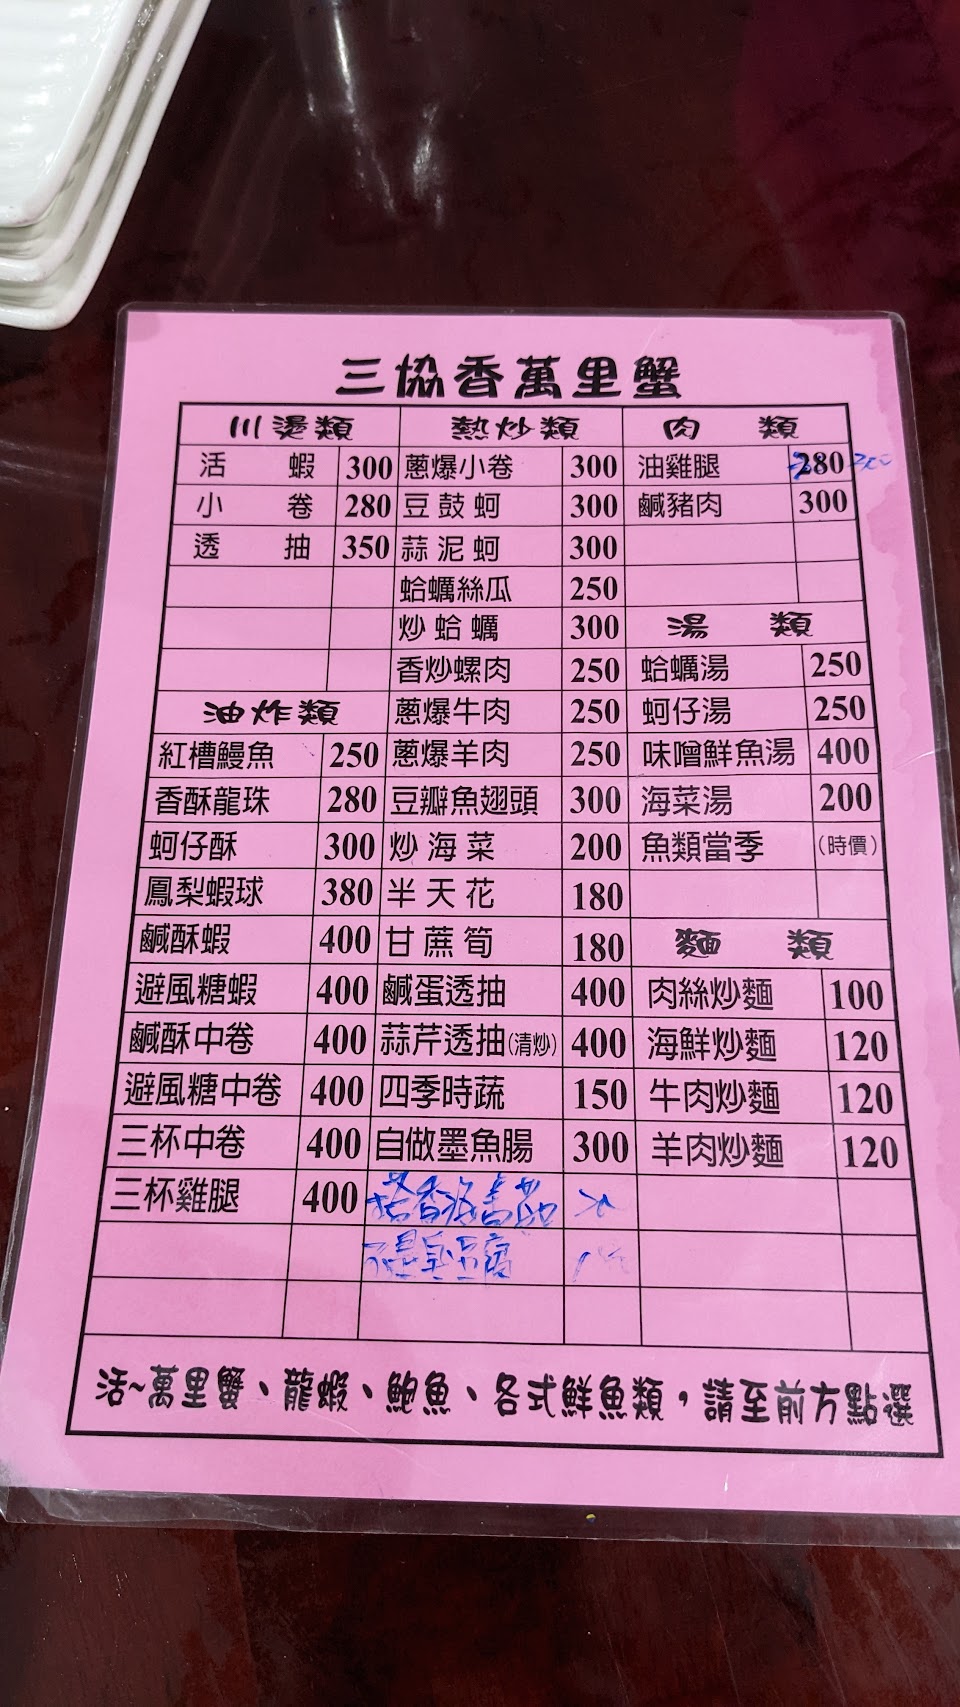 三協香萬里蟹
川燙類 熱炒類 肉類
活蝦 300 蔥爆小卷 300 油雞腿 280 300
小卷 280 豆鼓蚵 300 鹹豬肉 300
透抽 350 蒜泥蚵 300
蛤蠣絲瓜 250
炒蛤蠣 300 湯類
香炒螺肉 250 蛤蠣湯 250
油炸類 蔥爆牛肉 250 蚵仔湯 250
紅槽鰻魚 250 蔥爆羊肉 250 味噌鮮魚湯 400
香酥龍珠 280 豆瓣魚翅頭 300 海菜湯 200
蚵仔酥 300 炒海菜 200 魚類當季 (時價)
鳳梨蝦球 380 半天花 180
鹹酥蝦 400 甘蔗筍 180 麵類
避風糖蝦 400 鹹蛋透抽 400 肉絲炒麵 100
鹹酥中卷 400 蒜芹透抽(清炒) 400 海鮮炒麵 120
避風糖中卷 400 四季時蔬 150 牛肉炒麵 120
三杯中卷 400 自做墨魚腸 300 羊肉炒麵 120
三杯雞腿 400
臭豆腐
活~萬里蟹、龍蝦、鮑魚、各式鮮魚類，請至前方點選